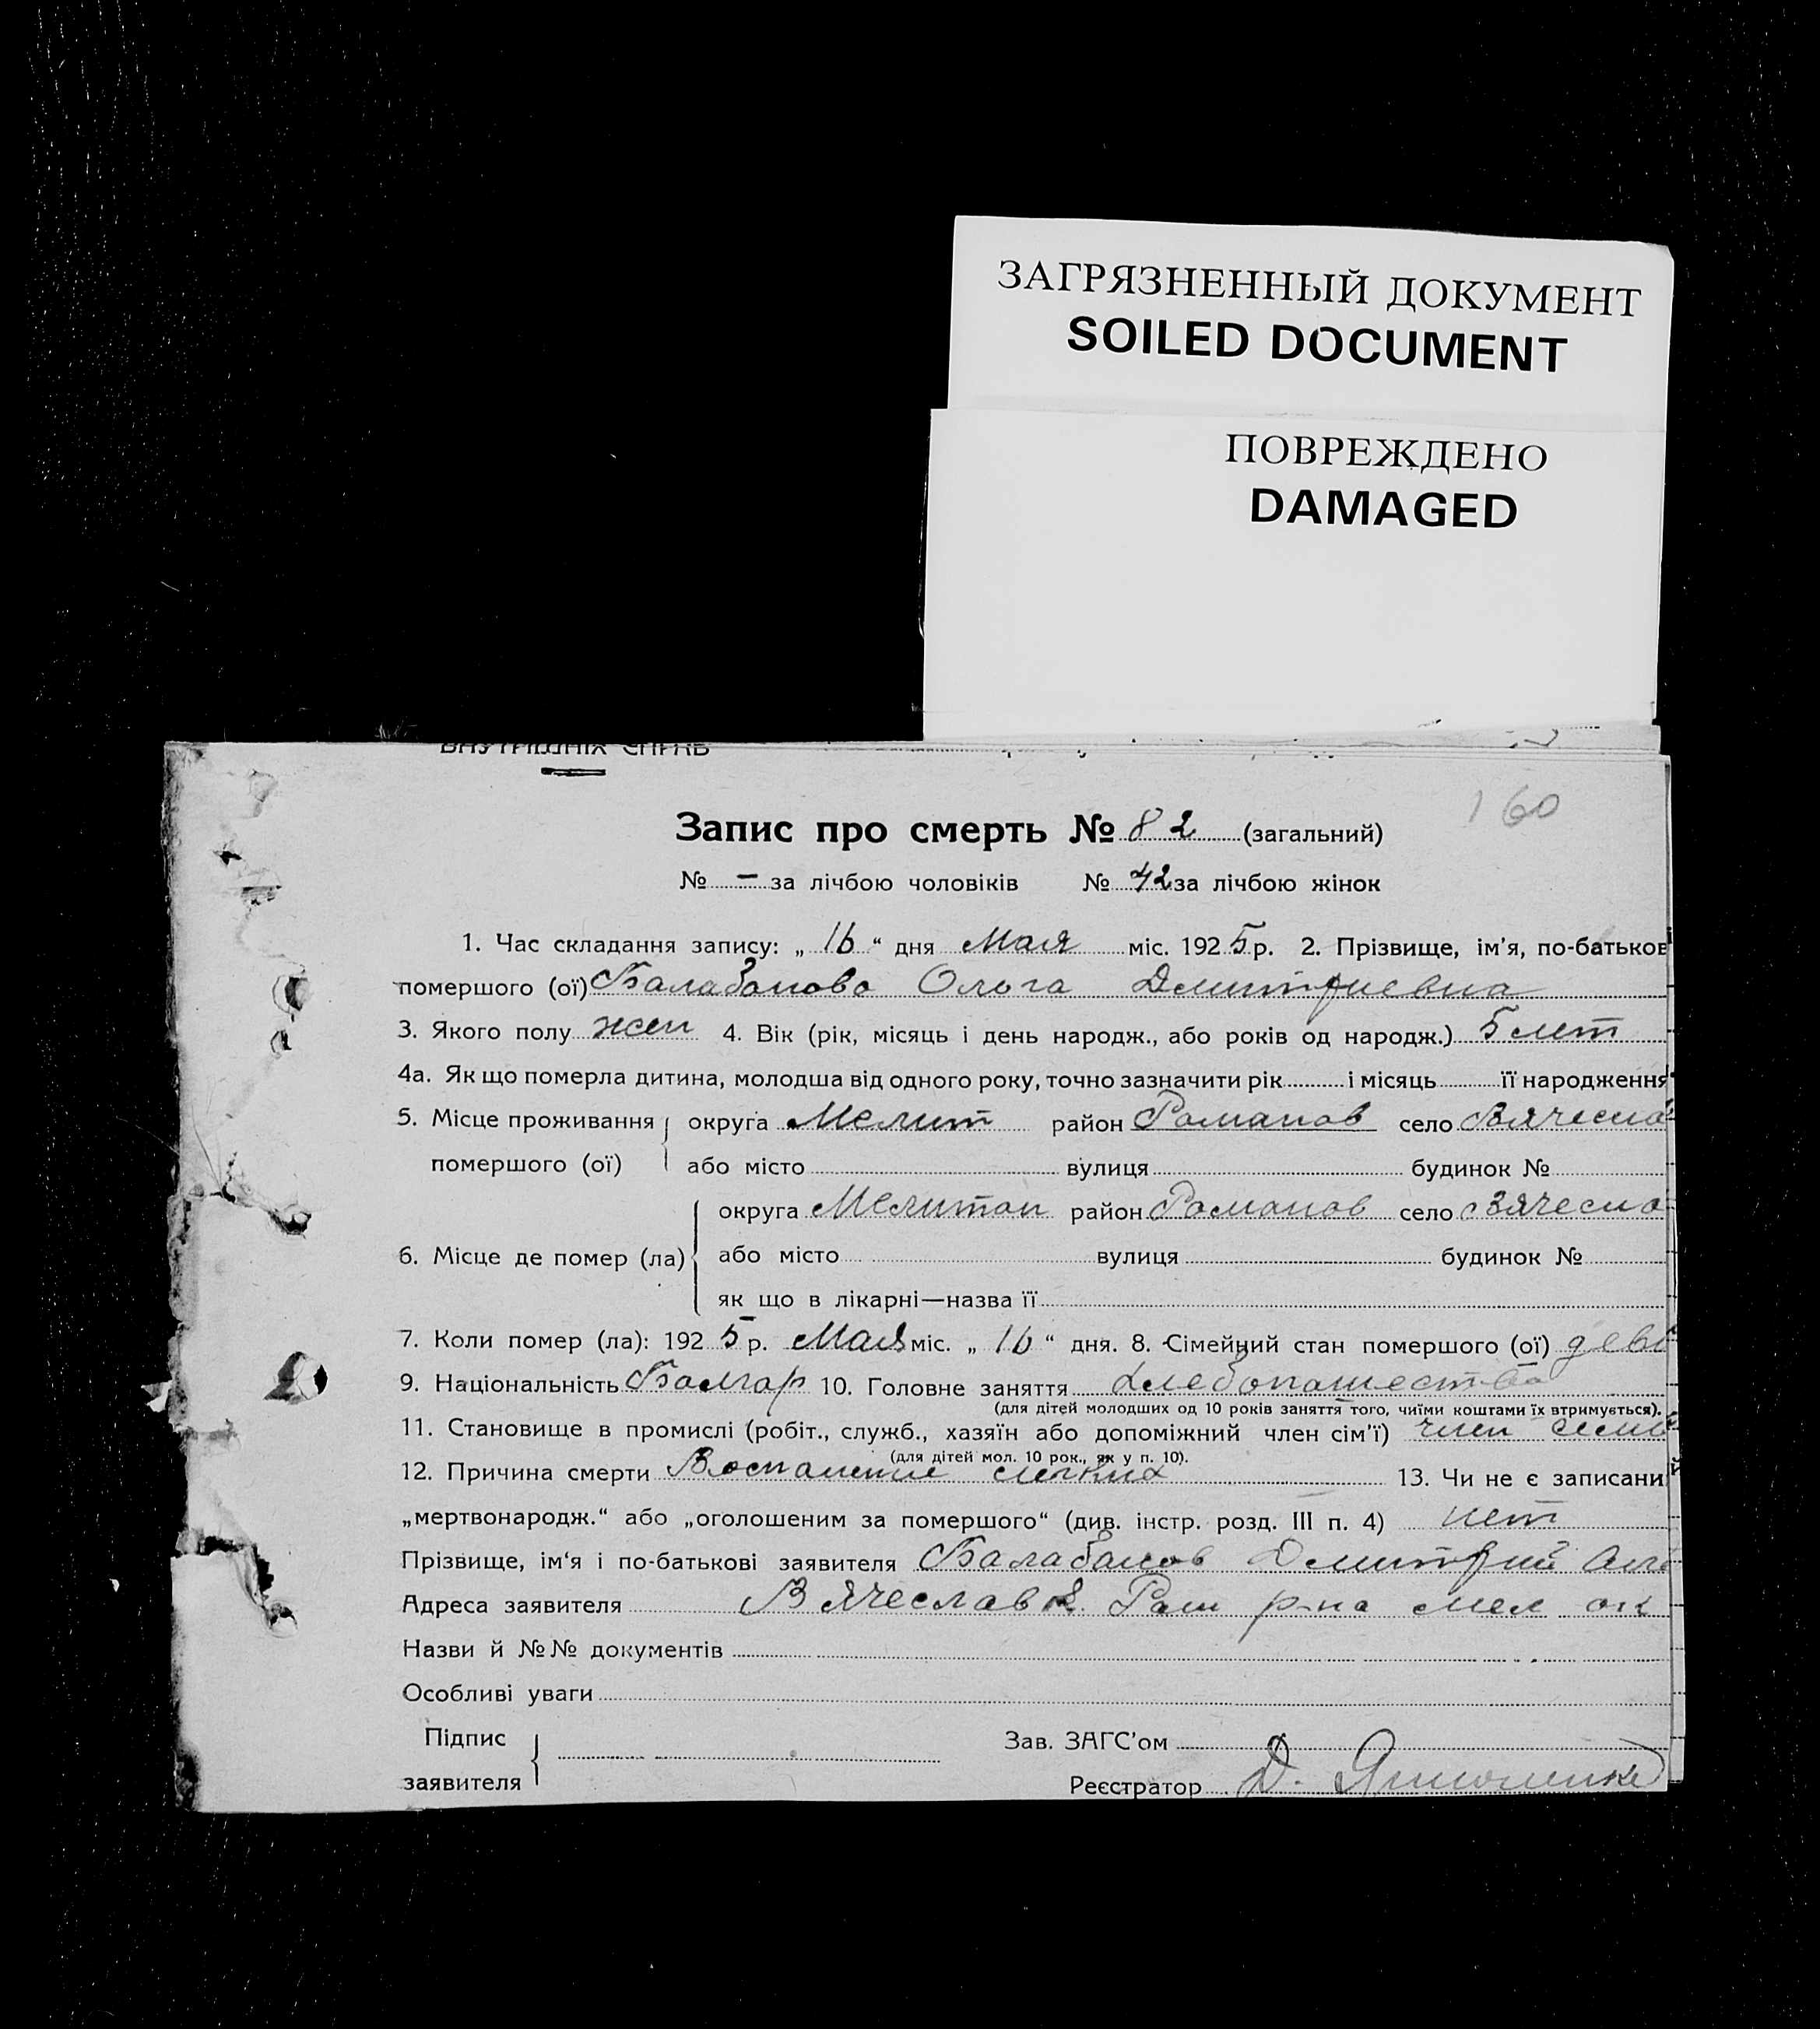 ЗАГРЯЗНЕННЫЙ ДОКУМЕНТ
SOILED DOCUMENT
ПОВРЕЖДЕНО
DAMAGED
ВНУТРІШНІХ СПРАВ
160
Запис про смерть № 82 (загальний)
№ – за лічбою чоловіків № 42 за лічбою жінок
1. Час складання запису: „ 16 “ дня Мая міс. 1925 р. 2. Прізвище, ім'я, по-батьков
помершого (ої) Балабанова Ольга Дмитриевна
3. Якого полу жен 4. Вік (рік, місяць і день народж., або років од народж.) 5 лет
4а. Як що померла дитина, молодша від одного року, точно зазначити рік і місяць її народження
5. Місце проживання округа Мелит район Романов село Вячесла
помершого (ої) або місто вулиця будинок №
округа Мелитоп район Романов село Вячесла
6. Місце де помер (ла) або місто вулиця будинок №
як що в лікарні—назва її
7. Коли помер (ла): 1925 р. Мая міс. „ 16 “ дня. 8. Сімейний стан помершого (ої) деви
9. Національність Болгар 10. Головне заняття Хлебопашество
(для дітей молодших од 10 років заняття того, чиїми коштами їх втримується).
11. Становище в промислі (робіт., служб., хазяїн або допоміжний член сім'ї) член семьи
(для дітей мол. 10 рок., як у п. 10).
12. Причина смерти Воспаление легких 13. Чи не є записани
„мертвонародж.“ або „оголошеним за помершого“ (див. інстр. розд. III п. 4) нет
Прізвище, ім‘я і по-батькові заявителя Балабанов Дмитрий
Адреса заявителя Вячеславка Ром р-на мел ок
Назви й №№ документів
Особливі уваги
Підпис Зав. ЗАГС'ом
заявителя Реєстратор Д.